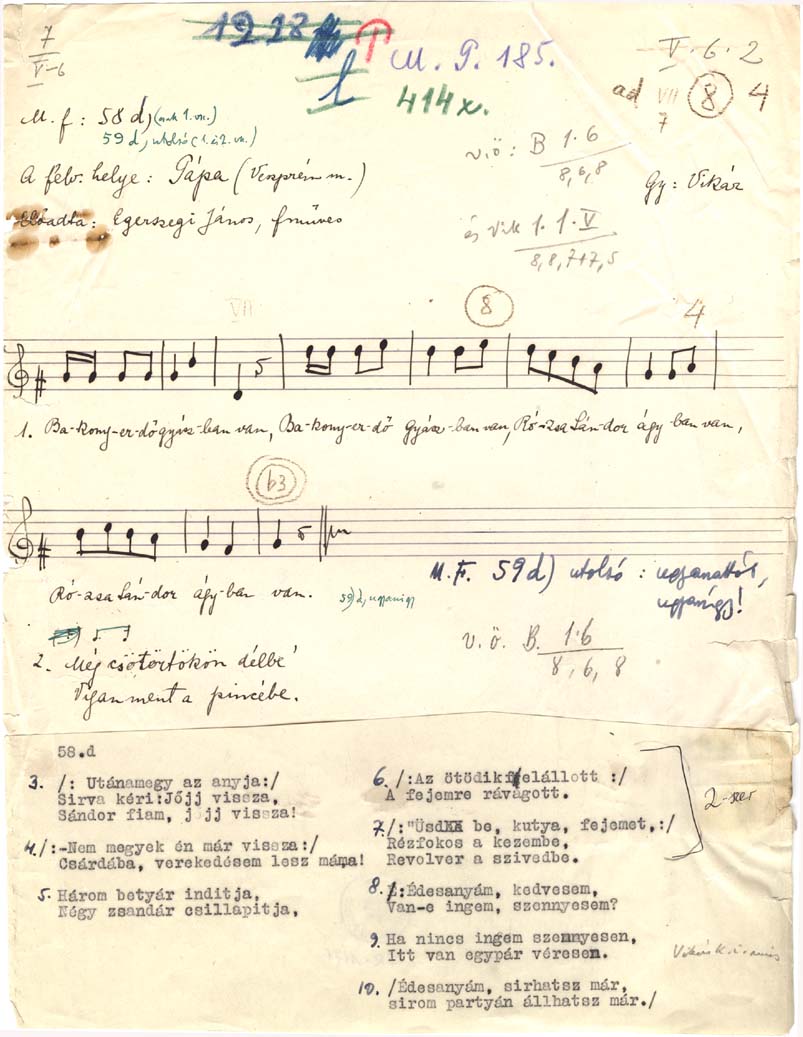 7
V-6
1928
T
l
M. P. 185.
414x.
V. 6. 2
ad VII 8 4
7
M. f: 58 d, (csak 1. vsz.)
59 d, utolsó (1. és 2. vsz.)
v.ö: B 1.6
8,6,8
A felv. helye: Pápa (Veszprém m.)
Gy: Vikár
Előadta: Egerszegi János, fműves
és Vik 1. 1. V
8,8,7+7,5
VII 8 4
1. Ba-kony-er-dő gyász-ban van, Ba-kony-er-dő gyász-ban van, Ró-zsa Sán-dor ágy-ban van,
b3
Ró-zsa Sán-dor ágy-ban van.
59 d, ugyanígy
M.F. 59 d) utolsó: ugyanattól,
ugyanígy!
v.ö. B. 1.6
8, 6, 8
2. Még csötörtökön délbe
Vigan ment a pincébe.
58.d
3. /: Utánamegy az anyja:/
Sirva kéri:Jőjj vissza,
Sándor fiam, jőjj vissza!
4./:-Nem megyek én már vissza:/
Csárdába, verekedésem lesz máma!
5. Három betyár inditja,
Négy zsandár csillapitja,
6. /:Az ötödik felállott :/
A fejemre rávágott.
7./:"Üsd be, kutya, fejemet,:/
Rézfokos a kezembe,
Revolver a szivedbe.
2-szer
8. /:Édesanyám, kedvesem,
Van-e ingem, szennyesem?
9. Ha nincs ingem szennyesen,
Itt van egypár véresen.
10. /Édesanyám, sirhatsz már,
sirom partyán állhatsz már./